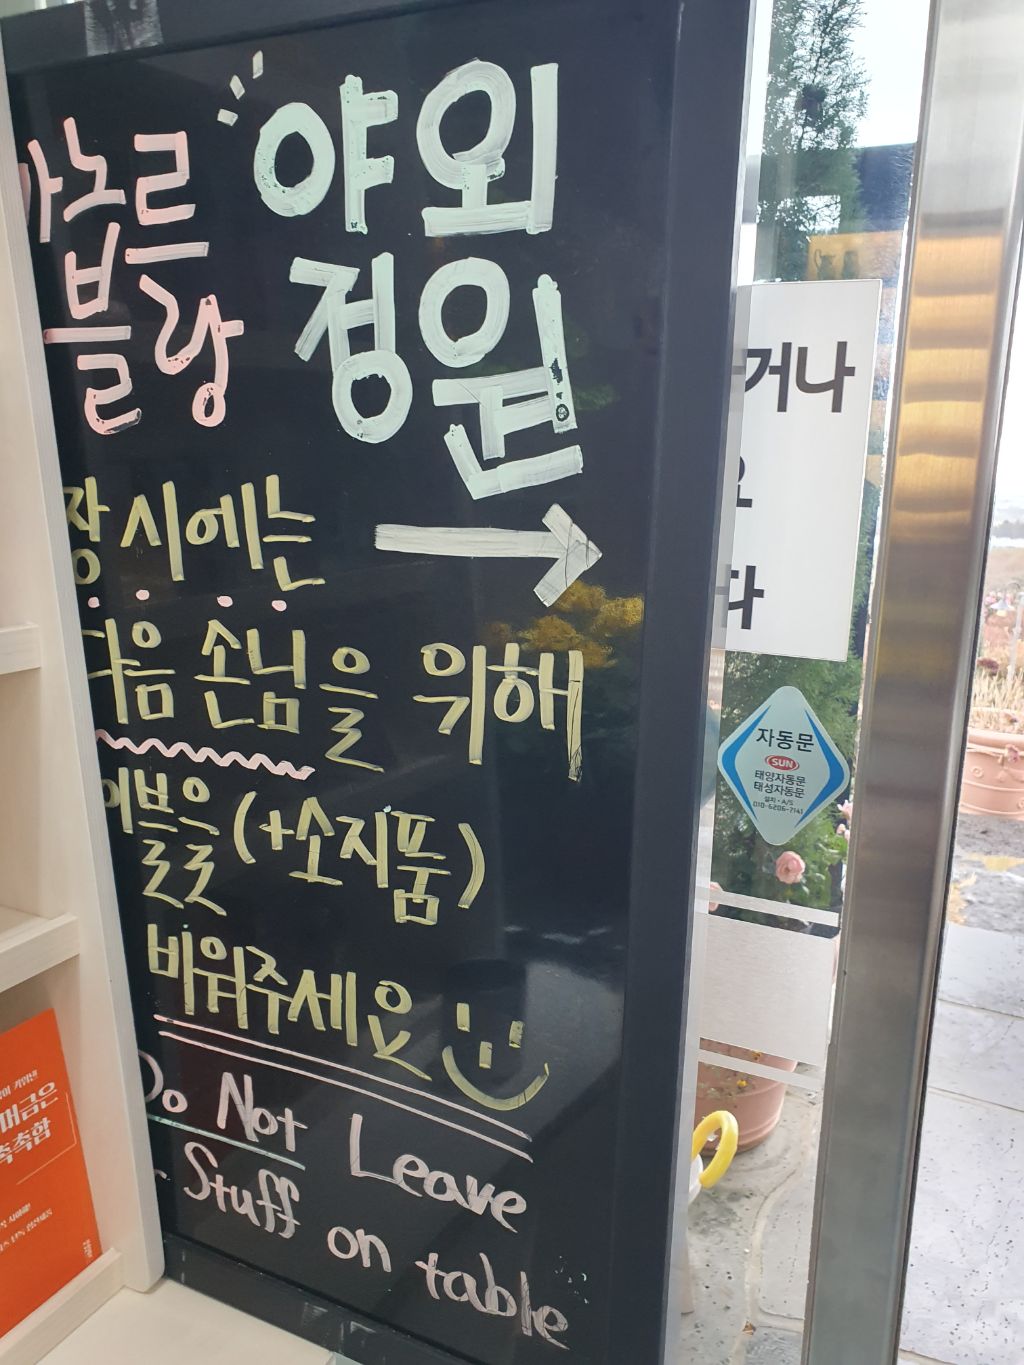 카노르 야외
블랑 정원
장시에는
다음 손님을 위해
이블을 (+소지품)
비워주세요
Do Not Leave
Stuff on table
거나
요
다
자동문
SUN
태양자동문
태성자동문
설치·A/S
010-6206-7141